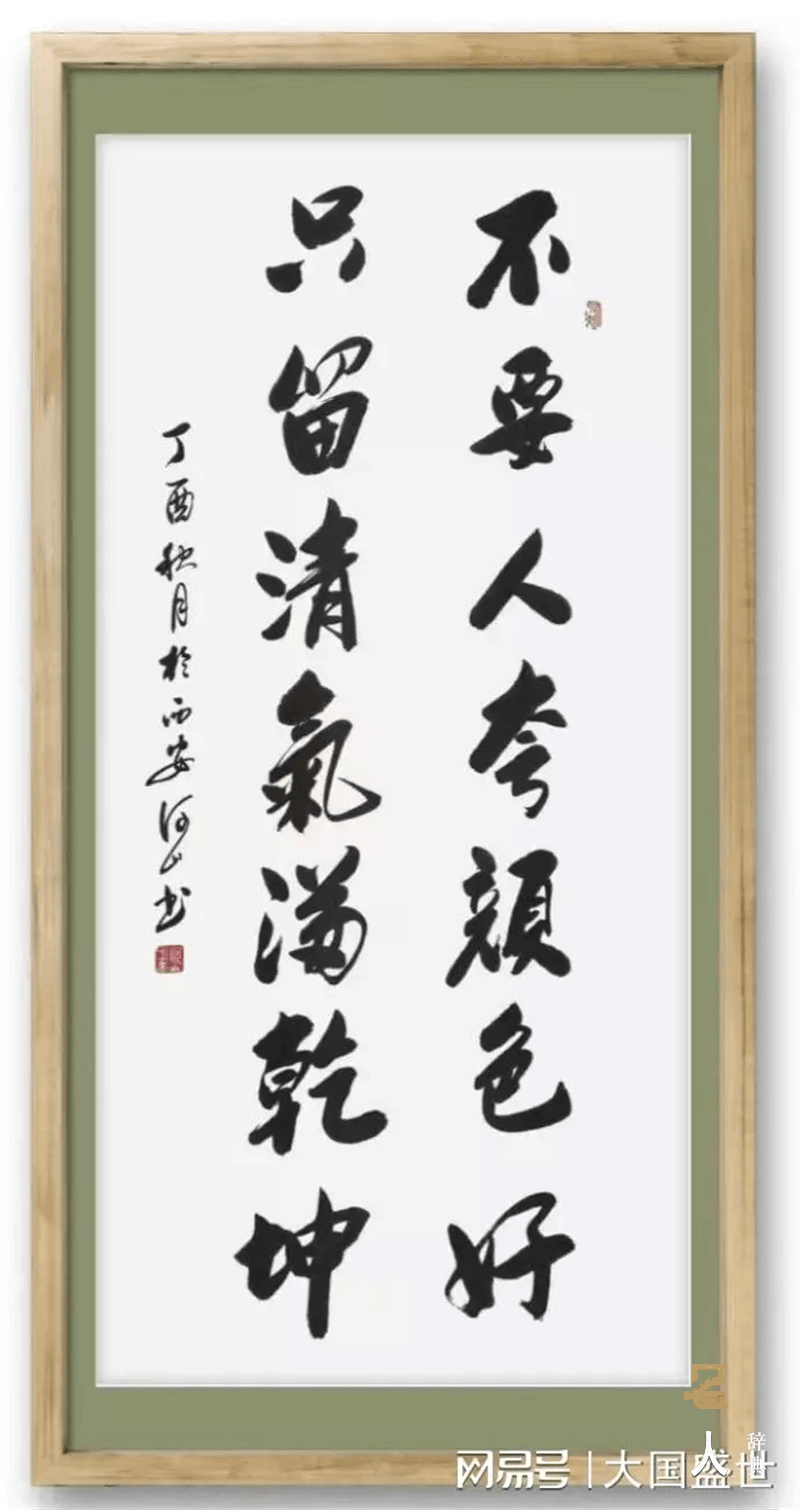 不要人夸颜色好
只留清氣满乾坤
丁酉秋月於西安河山书
网易号 | 大国盛世
人
辞典